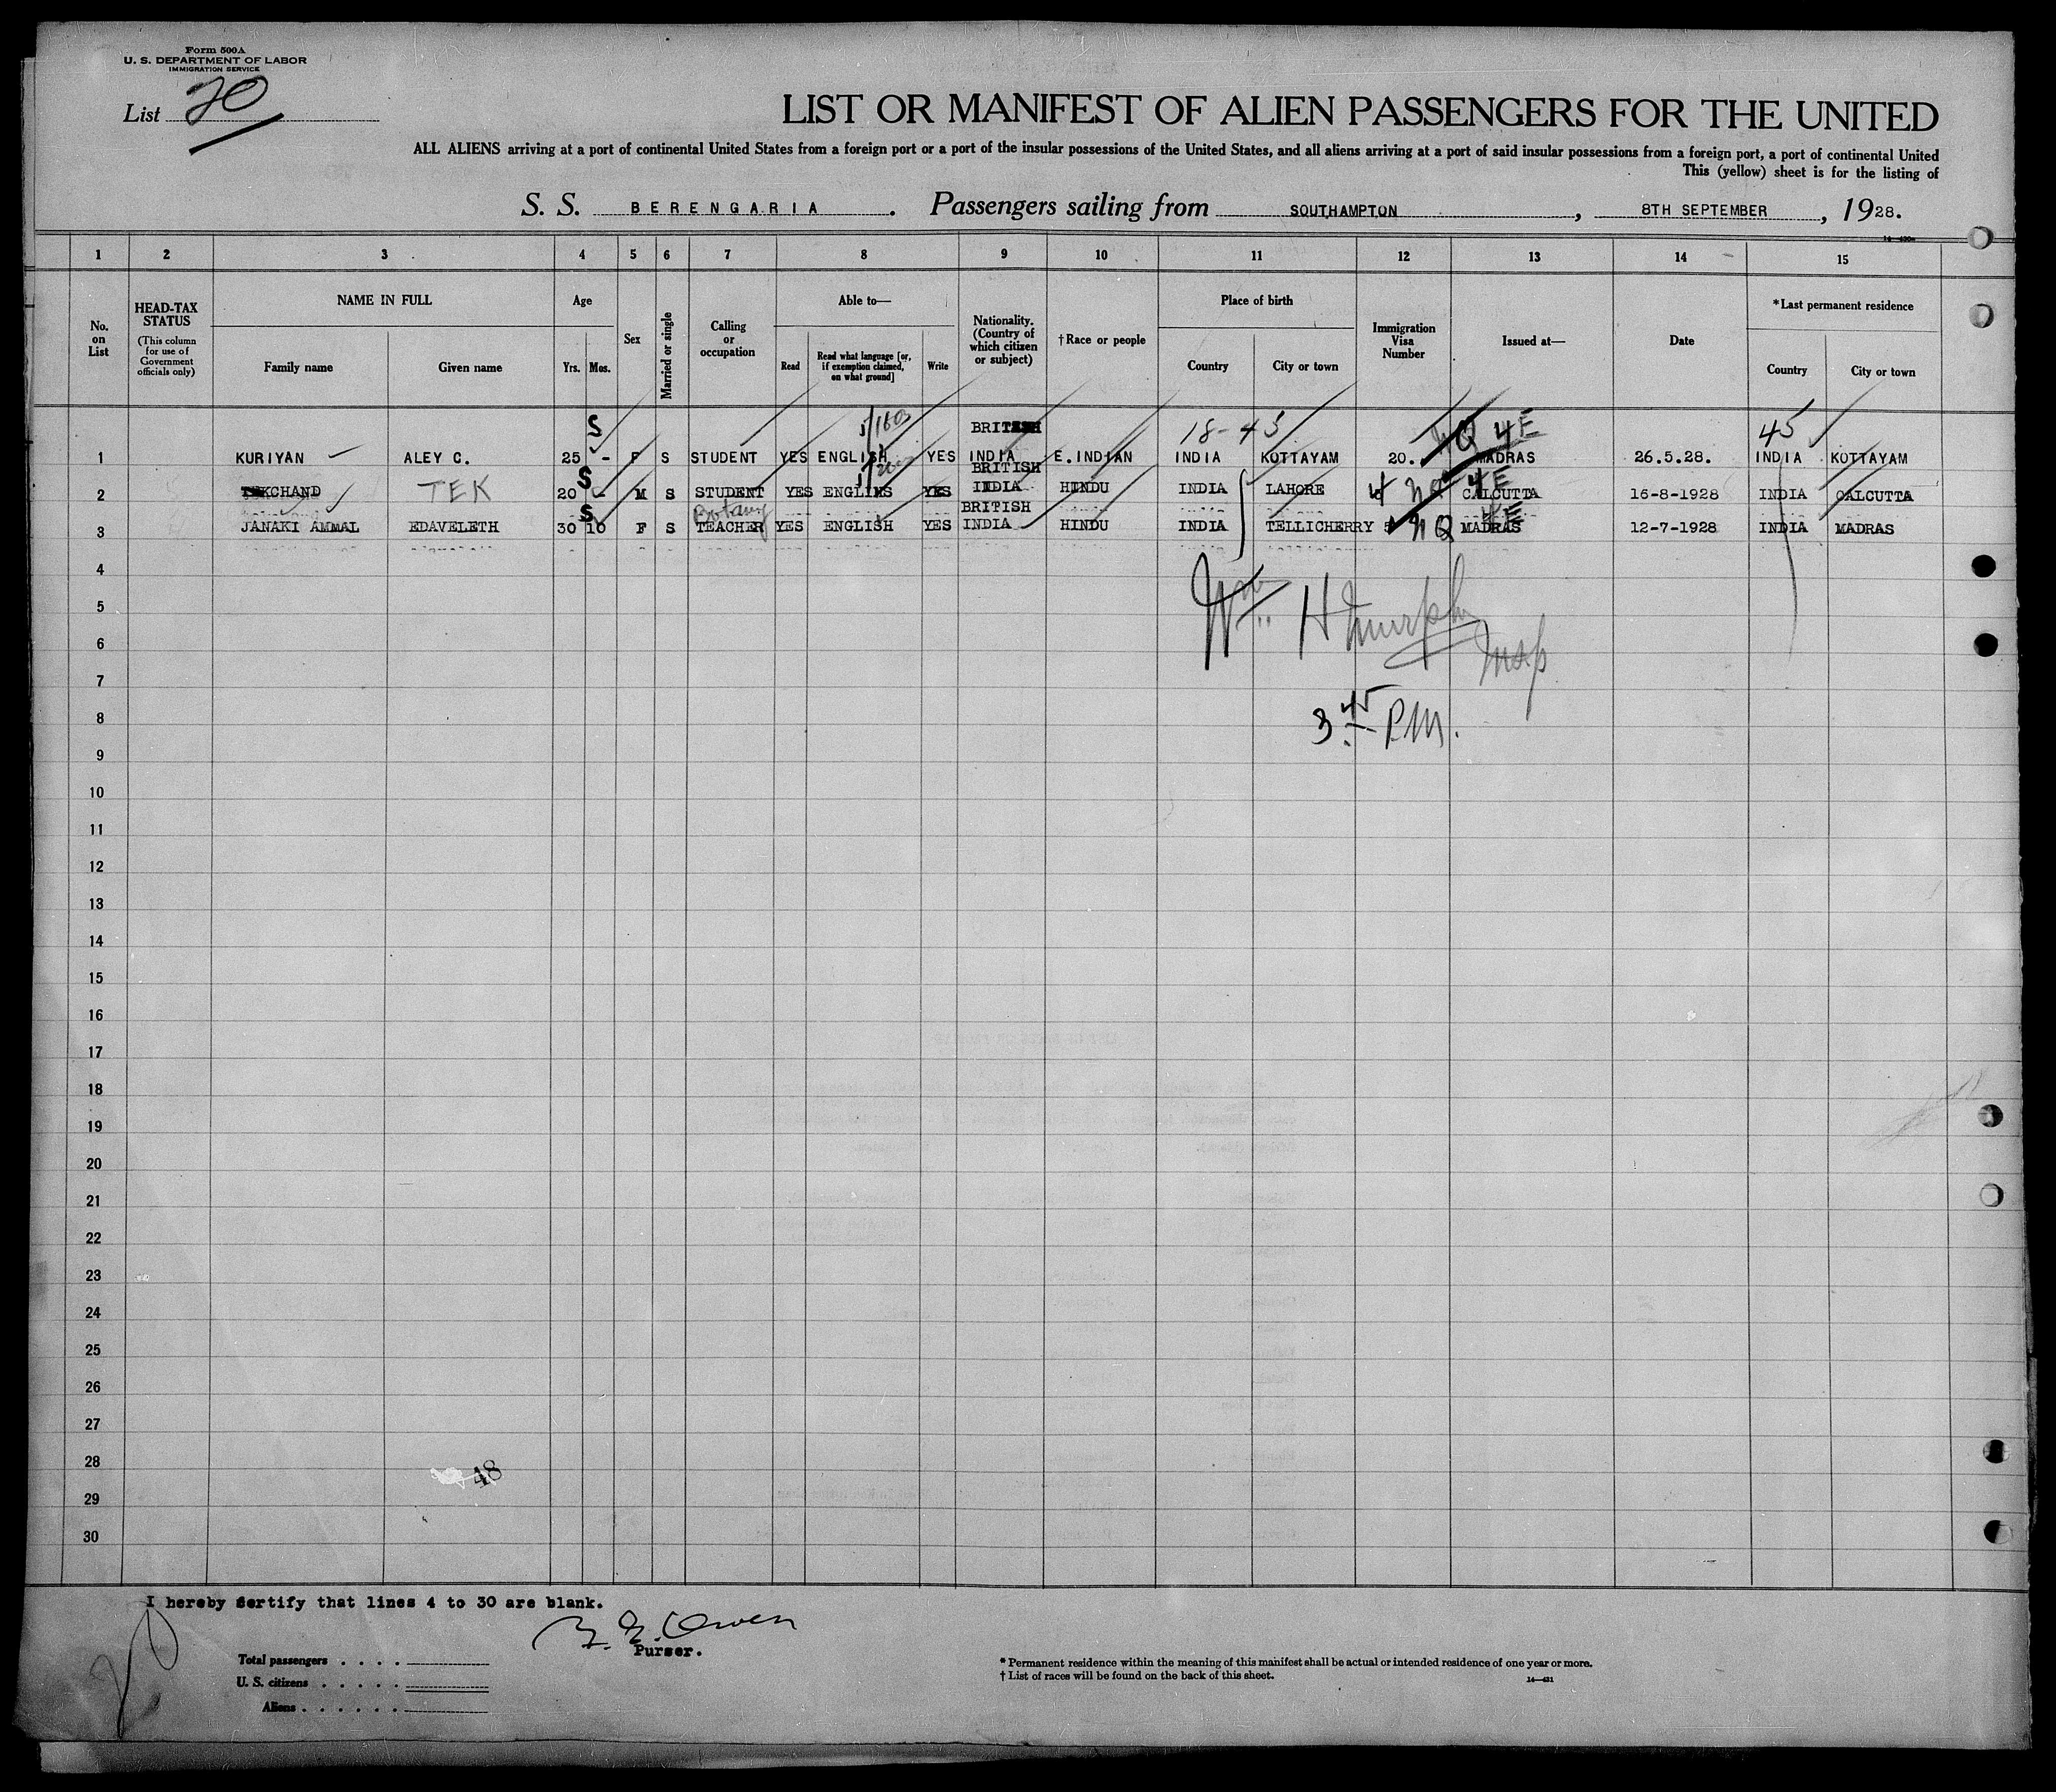 Form 500A
U. S. DEPARTMENT OF LABOR
IMMIGRATION SERVICE
List 20
LIST OR MANIFEST OF ALIEN PASSENGERS FOR THE UNITED
ALL ALIENS arriving at a port of continental United States from a foreign port or a port of the insular possessions of the United States, and all aliens arriving at a port of said insular possessions from a foreign port, a port of continental United
This (yellow) sheet is for the listing of
S. S. BERENGARIA. Passengers sailing from SOUTHAMPTON, 8TH SEPTEMBER, 1928.
1 2 3 4 5 6 7 8 9 10 11 12 13 14 15
No. on List
HEAD-TAX STATUS
(This column for use of Government officials only)
NAME IN FULL
Family name Given name
Age
Yrs. Mos.
Sex
Married or single
Calling or occupation
Able to—
Read
Read what language [or, if exemption claimed, on what ground]
Write
Nationality. (Country of which citizen or subject)
†Race or people
Place of birth
Country City or town
Immigration Visa Number
Issued at—
Date
*Last permanent residence
Country City or town
S 18-45 NQ 4E 45
1 KURIYAN ALEY C. 25 - F S STUDENT YES ENGLISH YES BRITISH INDIA E.INDIAN INDIA KOTTAYAM 20. MADRAS 26.5.28. INDIA KOTTAYAM
S NQ 4E
2 CHAND TEK 20 - M S STUDENT YES ENGLIHS YES BRITISH INDIA HINDU INDIA LAHORE 4 CALCUTTA 16-8-1928 INDIA CALCUTTA
S Botany NQ 4E
3 JANAKI AMMAL EDAVELETH 30 10 F S TEACHER YES ENGLISH YES BRITISH INDIA HINDU INDIA TELLICHERRY MADRAS 12-7-1928 INDIA MADRAS
4
Wm H Murphy
5
6
Insp
7
8
3 45 P.M.
9
10
11
12
13
14
15
16
17
18
19
20
21
22
23
24
25
26
27
28
48
29
30
I hereby certify that lines 4 to 30 are blank.
Owen
Purser.
20
Total passengers . . . .
U. S. citizens . . . . .
Aliens . . . . . .
* Permanent residence within the meaning of this manifest shall be actual or intended residence of one year or more.
† List of races will be found on the back of this sheet.
14—431